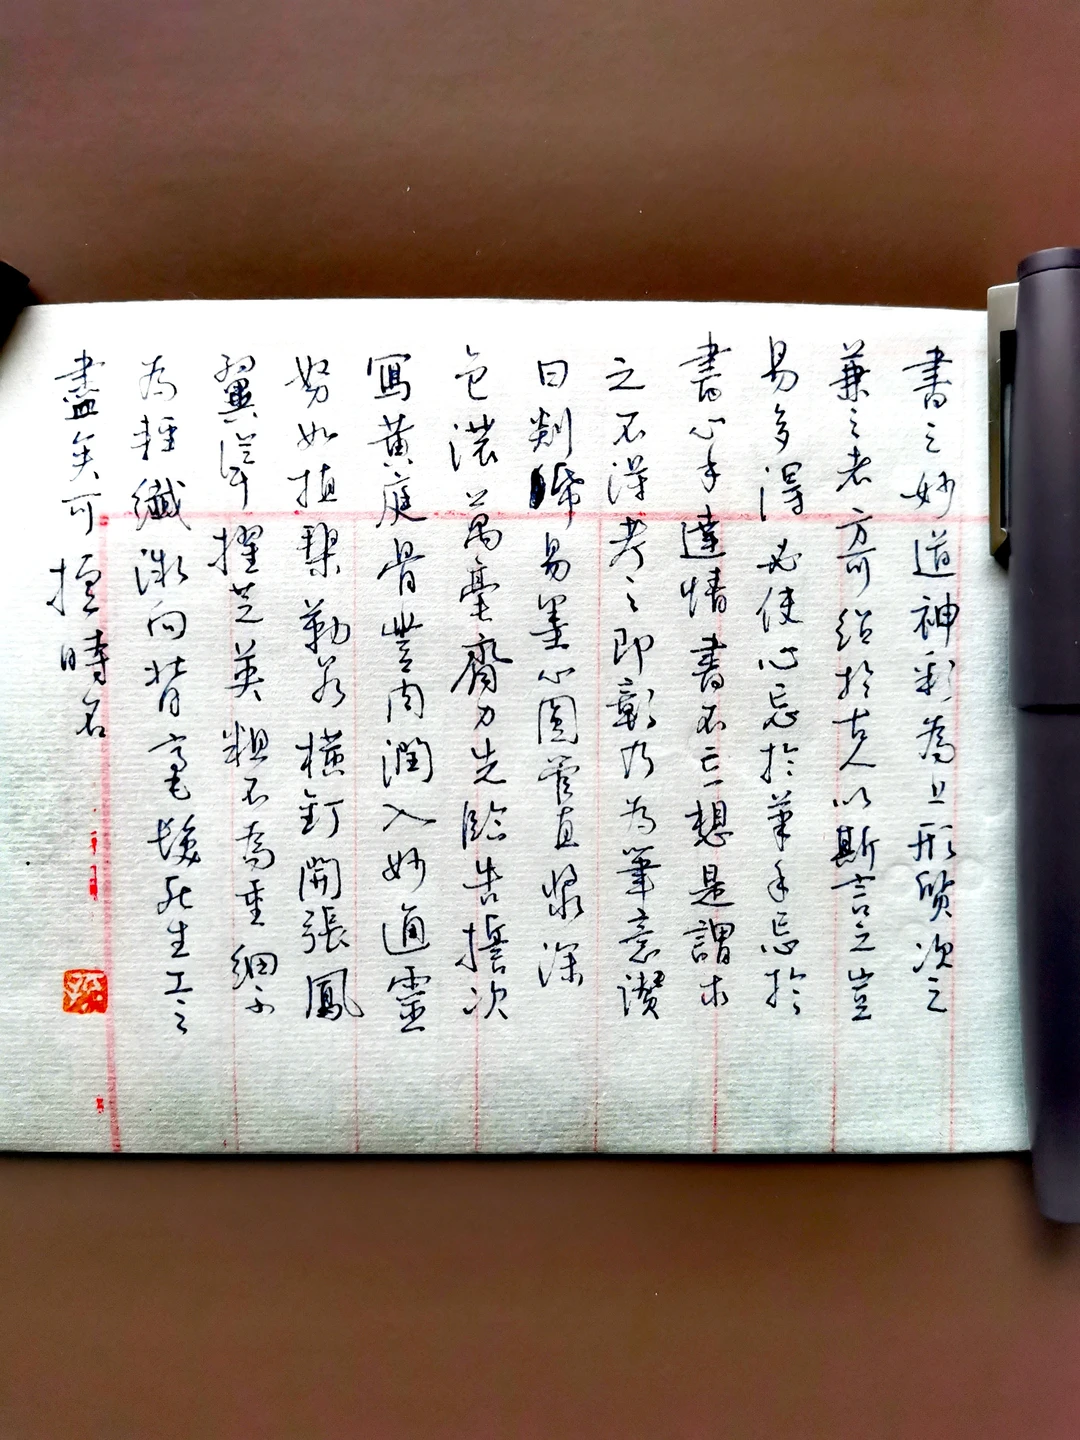 書之妙道神彩為上形質次之
兼之者方可紹於古人以斯言之豈
易多得必使心忘於筆手忘於
書心手達情書不亡想是謂求
之不得考之即彰乃為筆意讚
曰剡易墨心圓管直漿深
色濃萬毫齊力先臨告誓次
寫黃庭骨豐肉潤入妙通靈
努如植槊勒若橫釘開張鳳
翼聳擢芝英粗不為重細不
為輕纖微向背毫髮死生工之
盡矣可擅時名